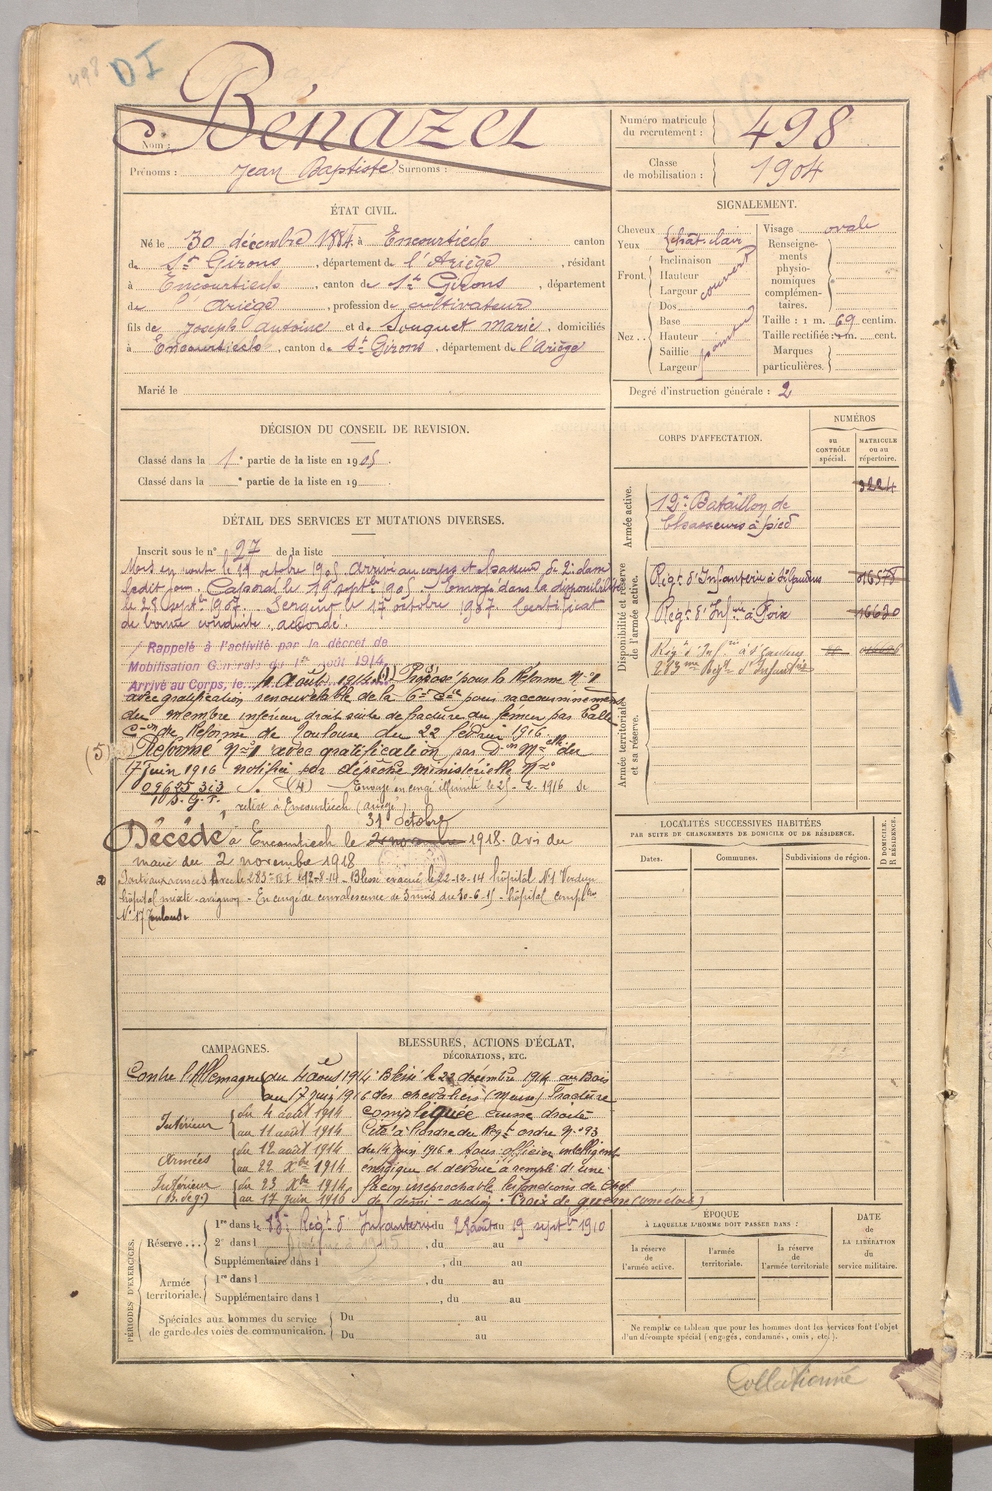 498 DI
Bénazet
Nom :
Prénoms : Jean Baptiste Surnoms :
Numéro matricule du recrutement : 498
Classe de mobilisation : 1904
ÉTAT CIVIL.
Né le 30 décembre 1884 à Encourtiech canton
de St Girons, département de l'Ariège, résidant
à Encourtiech, canton de St Girons, département
de l'Ariège, profession de cultivateur
fils de Joseph Antoine et de Souquet Marie, domiciliés
à Encourtiech, canton de St Girons, département de l'Ariège
Marié le
SIGNALEMENT.
Cheveux
Yeux
chât. clair
Front.
Inclinaison
Hauteur
Largeur
couvert
Nez..
Dos
Base
Hauteur
Saillie
Largeur
pointu
Visage ovale
Renseignements physionomiques complémentaires.
Taille : 1 m. 69 centim.
Taille rectifiée : 1 m. cent.
Marques particulières.
Degré d'instruction générale : 2
DÉCISION DU CONSEIL DE REVISION.
Classé dans la 1e partie de la liste en 1905.
Classé dans la e partie de la liste en 19
DÉTAIL DES SERVICES ET MUTATIONS DIVERSES.
Inscrit sous le n° 27 de la liste
Mis en rout le 19 octobre 1905 Arrivé au corps et chasseur de 2e classe
ledit jour. Caporal le 19 septbre 1905 - Envoyé dans la disponibilité
le 28 septbre 1907. Sergent le 17 octobre 1907 Certificat
de bonne conduite accordé.
Rappelé à l'activité par le décret de
Mobilisation Générale du 1er Août 1914.
Arrivé au Corps, le 4 Août 1914 (1) Proposé pour la Réforme N° 1
avec gratification renouvelable de la 6e Cie pour raccourcissement
du membre inférieur droit suite de fracture du fémur par balle
Con de Réforme de Toulouse du 22 février 1916
(5) Réformé N° 1 avec gratification par Don Melle du
17 juin 1916 notifiée par dépêche ministérielle N°
09625 313
10 S. G. P. (4) Envoyé en congé illimité le 25-2-1916 se
retire à Encourtiech (Ariège).
31 octobre
Décédé à Encourtiech le 2 novembre 1918. Avis du
maire du 2 novembre 1918
2 Parti aux armées avec le 283e RI 12-8-14 - Blessé évacué le 22-12-14 hôpital N° 1 Verdun
hôpital mixte avignon - En congé de convalescence de 3 mois du 30-6-15 - hôpital complre
N° 17 Toulouse
CORPS D'AFFECTATION.
NUMÉROS
au CONTRÔLE spécial.
MATRICULE ou au répertoire.
Armée active.
12e Bataillon de
Chasseurs à pied
3224
Disponibilité et réserve de l'armée active.
Régt d'Infanterie à St Gaudens 016578
Régt d'Infrie à Foix 16620
Régt d'Infrie à St Gaudens
283me Régt d'Infanterie
Armée territoriale et sa réserve.
LOCALITÉS SUCCESSIVES HABITÉES
PAR SUITE DE CHANGEMENTS DE DOMICILE OU DE RÉSIDENCE.
D DOMICILE.
R RÉSIDENCE.
Dates.
Communes.
Subdivisions de région.
CAMPAGNES.
Contre l'Allemagne du 4 août 1914
au 17 juin 1916
Intérieur du 4 août 1914
au 11 août 1914
Armées du 12 août 1914
au 22 Xbre 1914
Intérieur du 23 Xbre 1914
(B. de g.) au 17 juin 1916
BLESSURES, ACTIONS D'ÉCLAT,
DÉCORATIONS, ETC.
Blessé le 22 décembre 1914 au Bois
des chevaliers (Meuse) Fracture
compliquée cuisse droite
Cité à l'ordre du Régt ordre N° 93
du 14 juin 1916. Sous officier intelligent
énergique et dévoué a rempli d'une
façon irréprochable les fonctions de chef
de demi-section. Croix de guerre (une étoile)
PÉRIODES D'EXERCICES.
Réserve...
1re dans l 83e Régt d'Infanterie du 28 août au 19 septbre 1910
2e dans l , du au
Supplémentaire dans l , du au
Armée territoriale.
1re dans l , du au
Supplémentaire dans l , du au
Spéciales aux hommes du service de garde des voies de communication.
Du au
Du au
ÉPOQUE
À LAQUELLE L'HOMME DOIT PASSER DANS :
la réserve de l'armée active.
l'armée territoriale.
la réserve de l'armée territoriale
DATE de LA LIBÉRATION du service militaire.
Ne remplir ce tableau que pour les hommes dont les services font l'objet
d'un décompte spécial (engagés, condamnés, omis, etc.).
Collationné